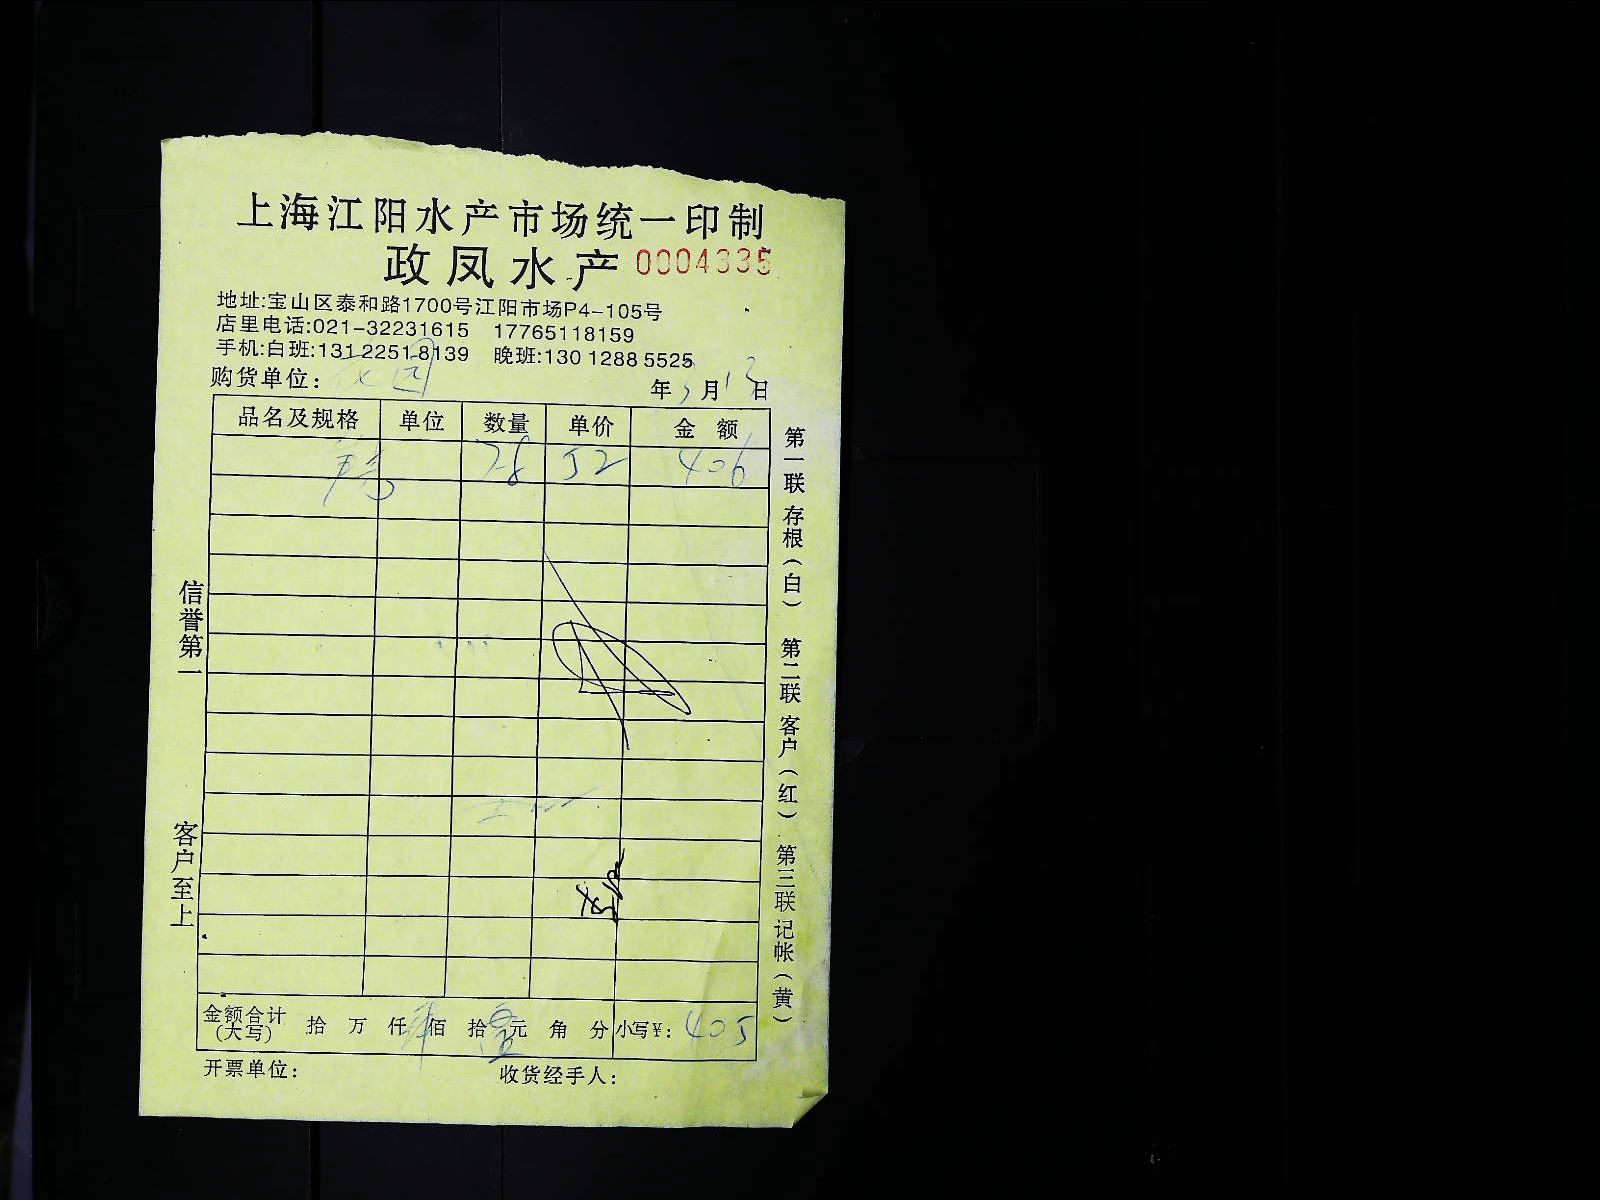 上海江阳水产市场统一印制
政凤水产 0004335
地址:宝山区泰和路1700号江阳市场P4-105号
店里电话:021-32231615 17765118159
手机:白班:131 2251 8139 晚班:130 1288 5525
购货单位: 园 年 3 月 13 日
品名及规格 单位 数量 单价 金额
78 52 406
信誉第一
客户至上
第一联 存根(白) 第二联 客户(红) 第三联 记帐(黄)
金额合计(大写) 拾 万 仟 佰 拾 元 角 分 小写¥: 405
开票单位: 收货经手人: